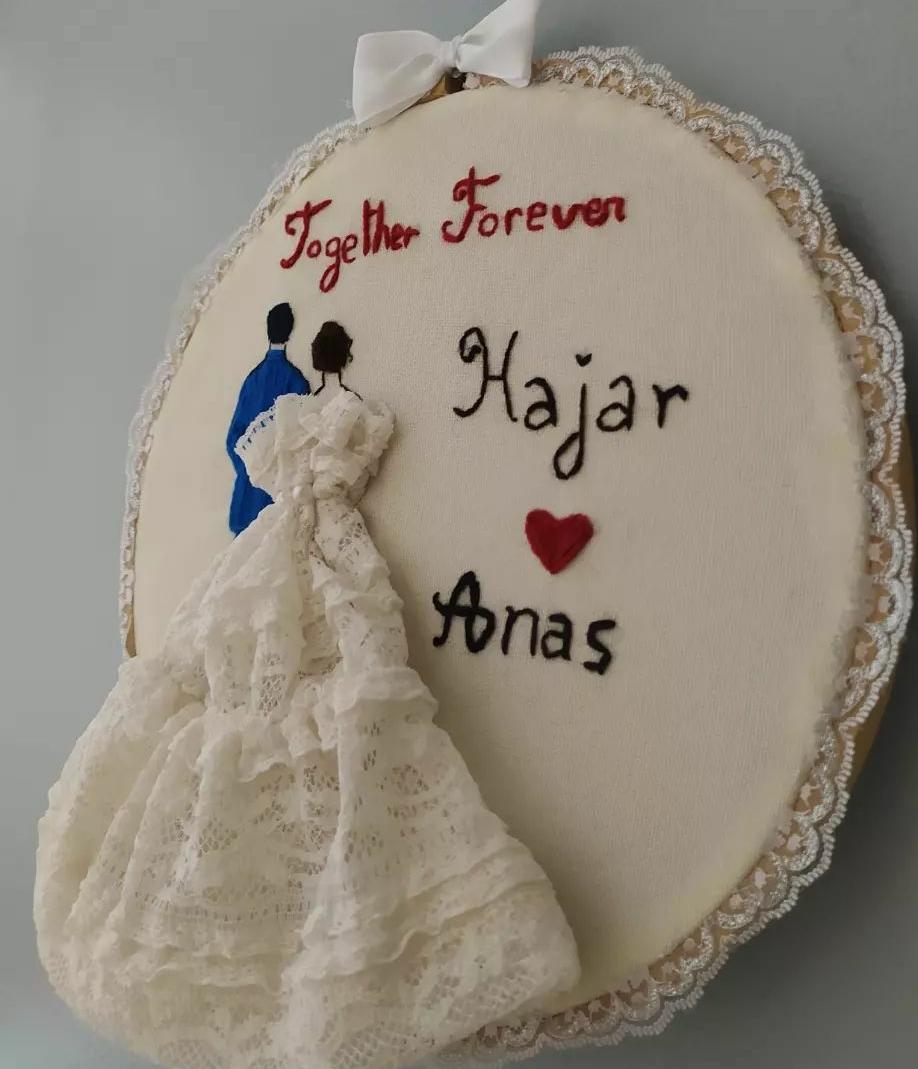 Together Forever
Hajar
Anas